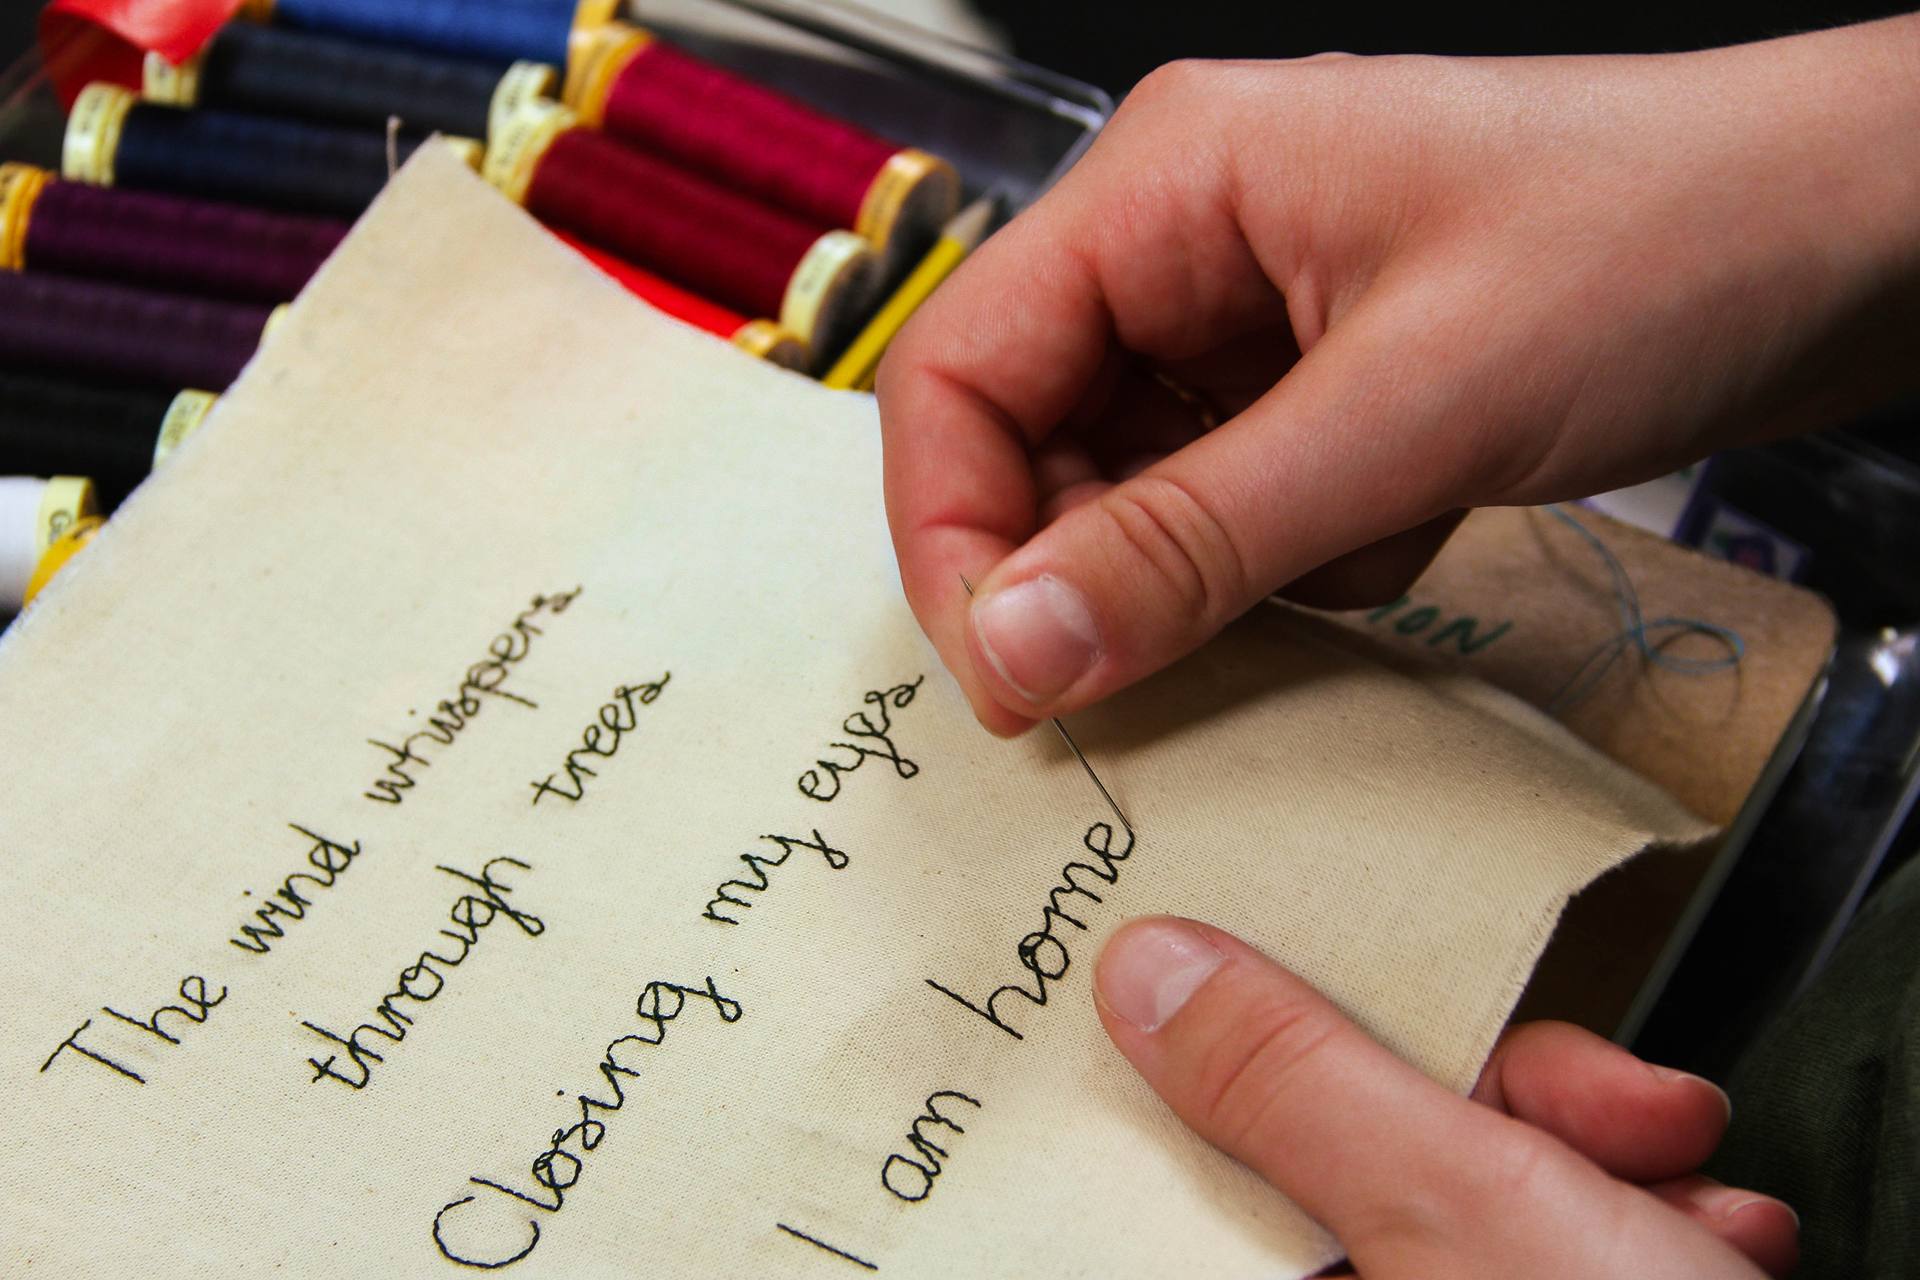 The wind whispers
through trees
Closing my eyes
I am home
ION